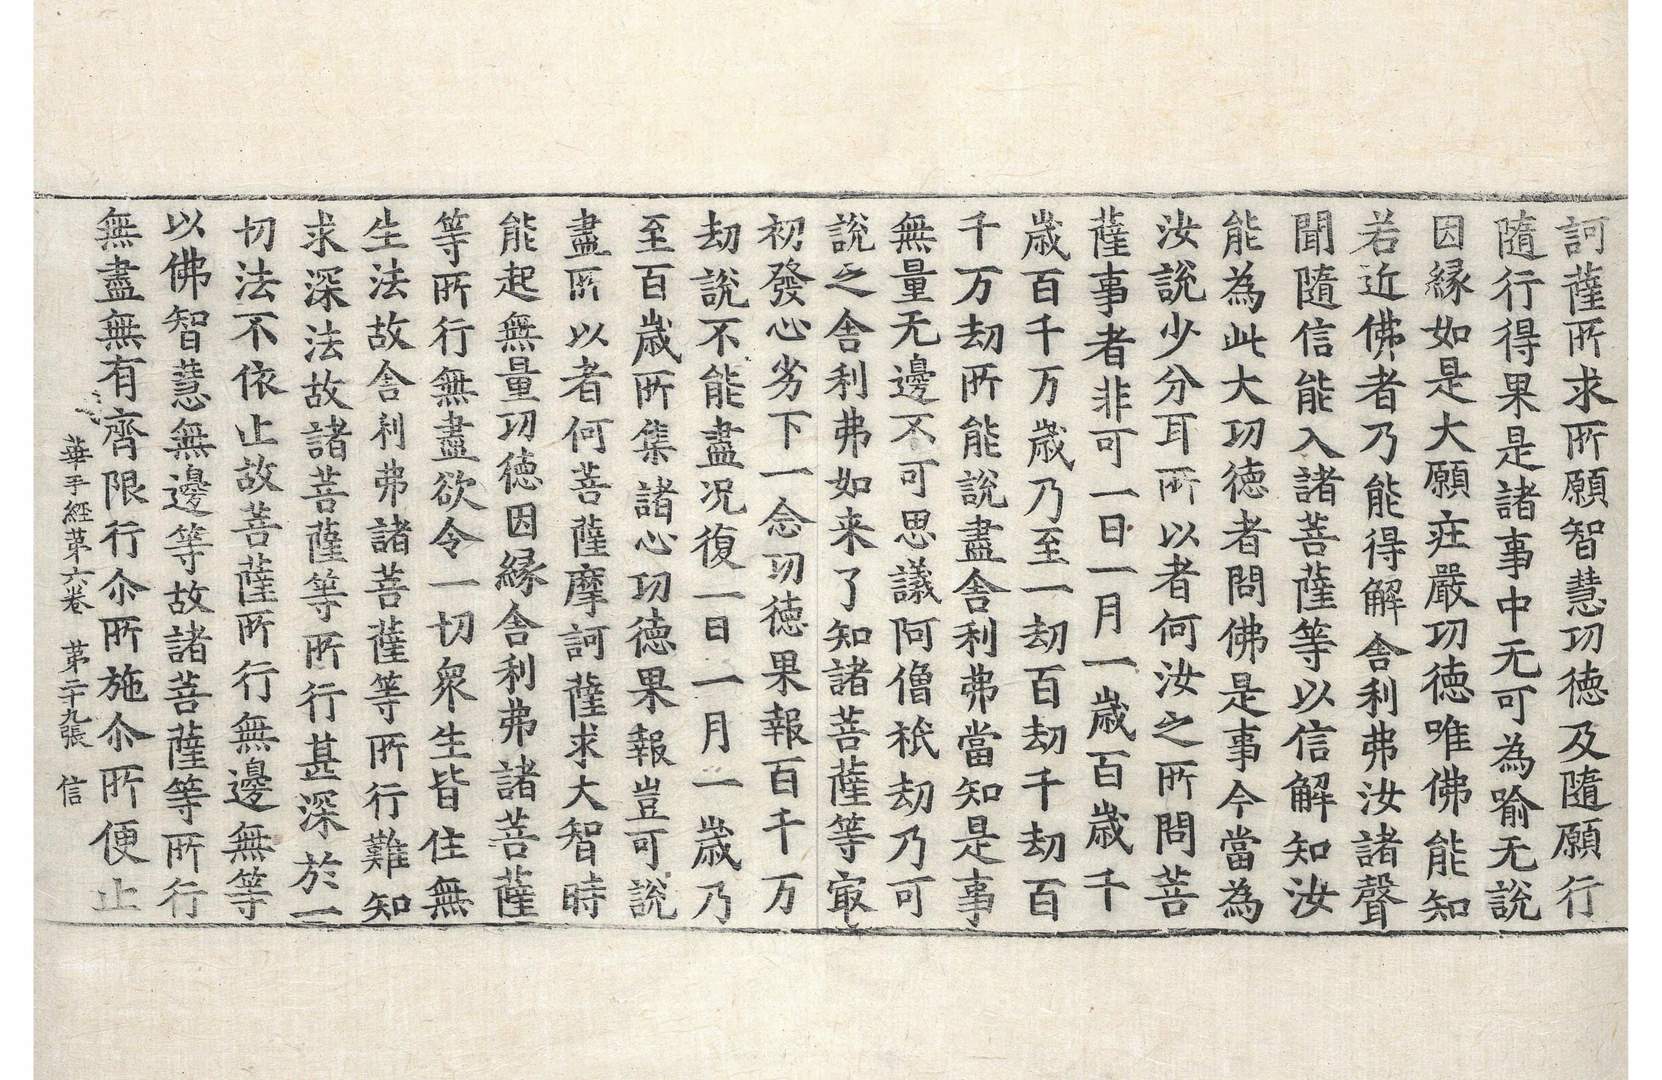 訶薩所求所願智慧功徳及隨願行
隨行得果是諸事中无可為喻无說
因縁如是大願庄嚴功徳唯佛能知
若近佛者乃能得解舎利弗汝諸聲
聞隨信能入諸菩薩等以信解知汝
能為此大功徳者問佛是事今當為
汝說少分耳所以者何汝之所問菩
薩事者非可一日一月一歲百歲千
歲百千万歲乃至一劫百劫千劫百
千万劫所能說盡舎利弗當知是事
無量无邊不可思議阿僧祇劫乃可
說之舎利弗如来了知諸菩薩等㝡
初發心劣下一念功徳果報百千万
劫說不能盡况復一日一月一歲乃
至百歲所集諸心功徳果報豈可說
盡所以者何菩薩摩訶薩求大智時
能起無量功徳因縁舎利弗諸菩薩
等所行無盡欲令一切衆生皆住無
生法故舎利弗諸菩薩等所行難知
求深法故諸菩薩等所行甚深於一
切法不依止故菩薩所行無邊無等
以佛智慧無邊等故諸菩薩等所行
無盡無有齊限行尒所施尒所便止
華手經第六卷 第二十九張 信